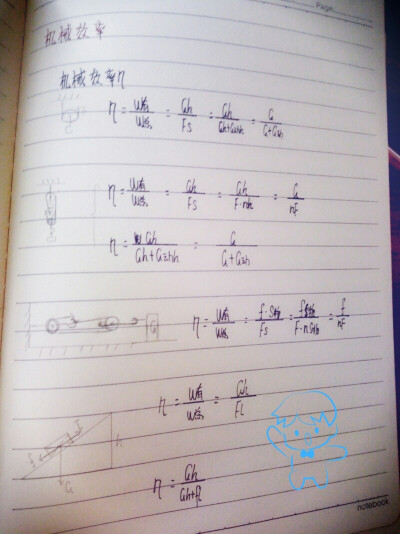 Page.
机械效率
机械效率η
η = W有/W总 = Gh/Fs = Gh/Gh+G动h = G/G+G动
η = W有/W总 = Gh/Fs = Gh/F·nh = G/nF
η = Gh/Gh+G动h = G/G+G动
η = W有/W总 = f·S物/Fs = fS物/F·nS物 = f/nF
G
η = W有/W总 = Gh/Fl
F
f
h
G
η = Gh/Gh+fl
notebook